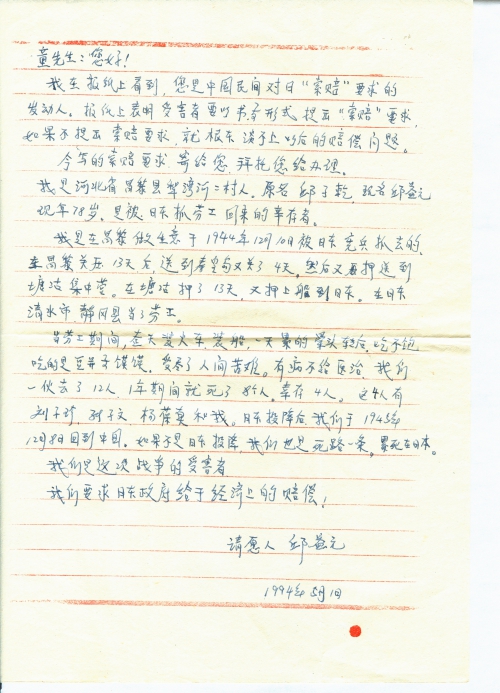 童先生：您好！
我在报纸上看到，您是中國民间对日“索赔”要求的
发动人。报纸上表明受害者要以书面形式提出“索赔”要求，
如果不提出索赔要求，就根本谈不上以后的赔偿问题。
今年的索赔要求寄给您，拜托您给办理。
我是河北省昌黎县犁湾河二村人。原名邱子乾，现名邱益元
现年78岁。是被日本抓劳工回来的幸存者。
我是在昌黎做生意于1944年12月10日被日本宪兵抓去的，
在昌黎关压13天后送到秦皇岛又关了4天。然后又再押送到
塘沽集中营。在塘沽押了13天，又押上船到日本。在日本
清水市静冈县当了劳工。
当劳工期间，每天装火车、装船，一天累的晕头转向，吃不饱
吃的是豆并子馍馍。受尽了人间苦难。有病不给医治 我们
一伙去了12人 1年期间就死了8个人。幸存4人。这4人有
和我。日本投降后我们于1945年
12月8日回到中国。如果不是日本投降 我们也是死路一条。累死在日本。
我们是这次战争的受害者
我们要求日本政府给于经濟上的赔偿！
请愿人 邱益元
1994年5月1日